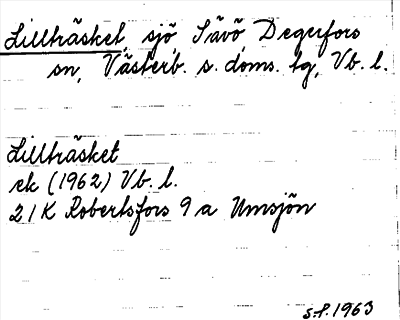 Lillträsket, sjö, Sävö Degerfors
sn, Västerb. s. doms. tg, Vb. l.
Lillträsket
ek (1962) Vb. l.
21K Robertsfors 9 a Umsjön
S.P. 1963